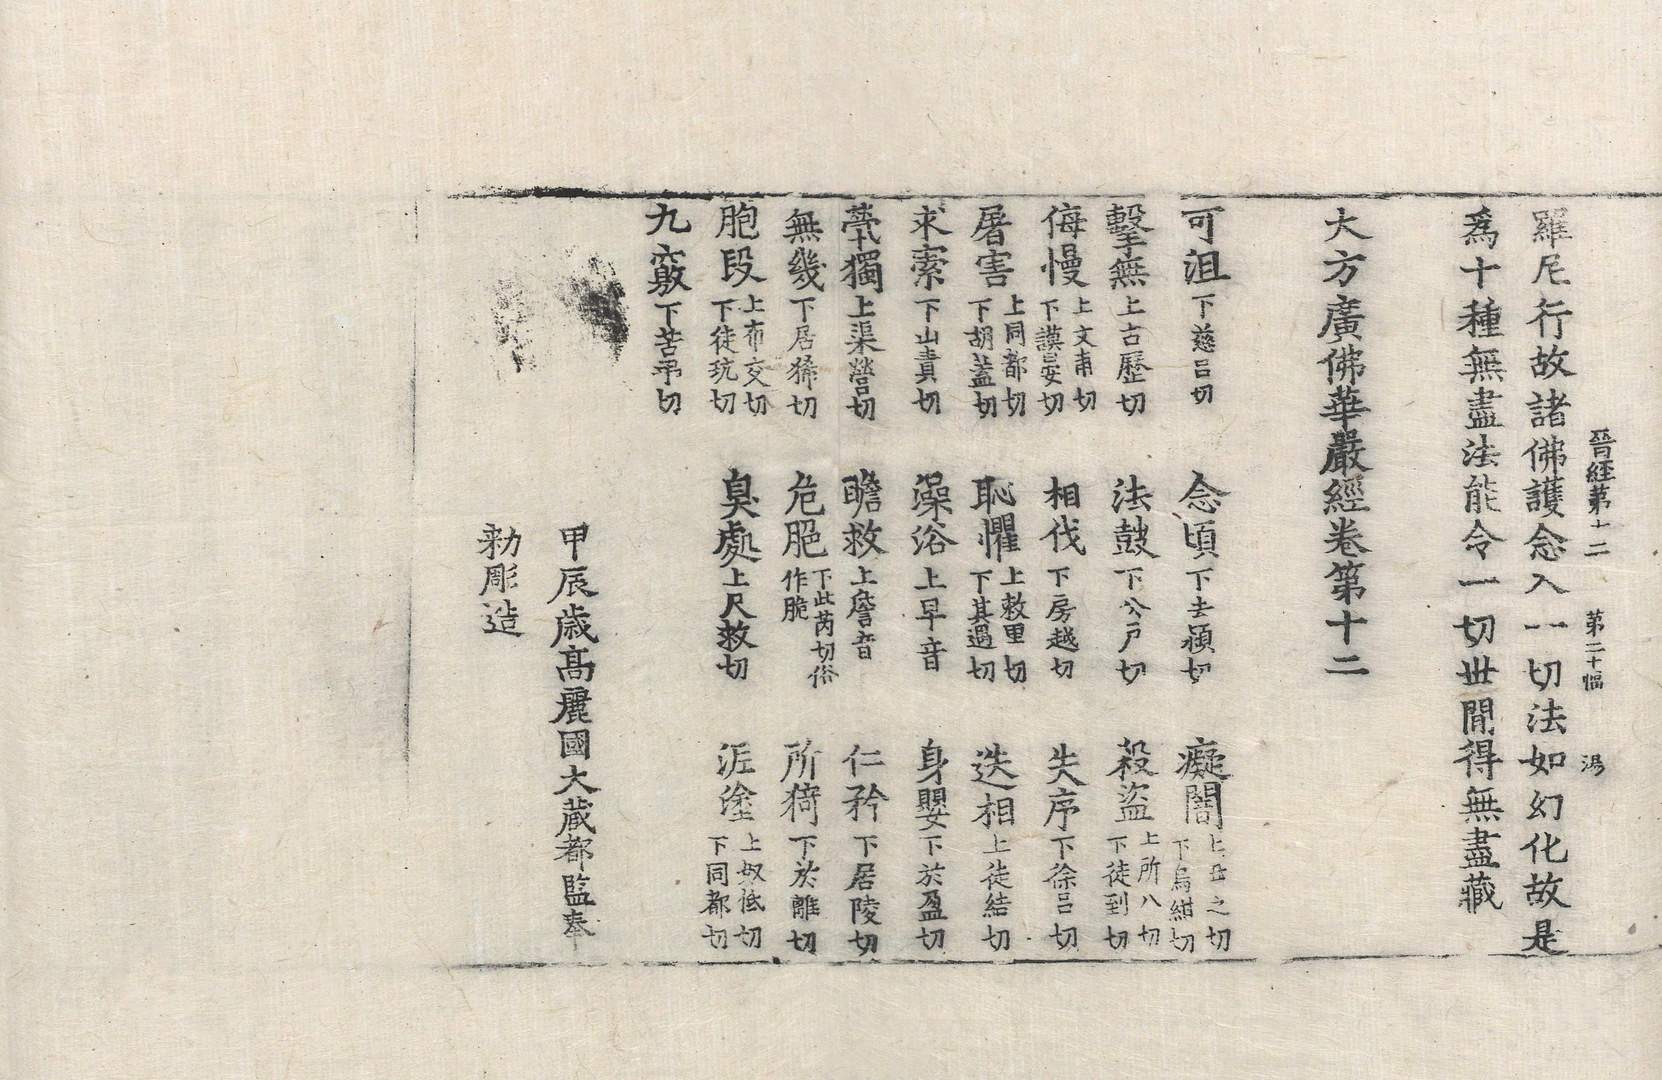 晉經第十二　第二十幅　湯
羅尼行故諸佛護念入一切法如幻化故是
爲十種無盡法能令一切世間得無盡藏
大方廣佛華嚴經卷第十二
可沮下慈呂切　念頃下去潁切　癡闇上丑之切下烏紺切
擊無上古歷切　法鼓下公戶切　殺盜上所八切下徒到切
侮慢上文甫切下謨晏切　相伐下房越切　失序下徐呂切
屠害上同都切下胡蓋切　恥懼上敕里切下其遇切　迭相上徒結切
求索下山責切　澡浴上早音　身嬰下於盈切
煢獨上渠營切　瞻救上詹音　仁矜下居陵切
無幾下居狶切　危脃下此芮切俗作脆　所猗下於離切
胞段上布交切下徒玩切　臭處上尺救切　泥塗上奴低切下同都切
九竅下苦弔切
甲辰歲高麗國大藏都監奉
勑彫造